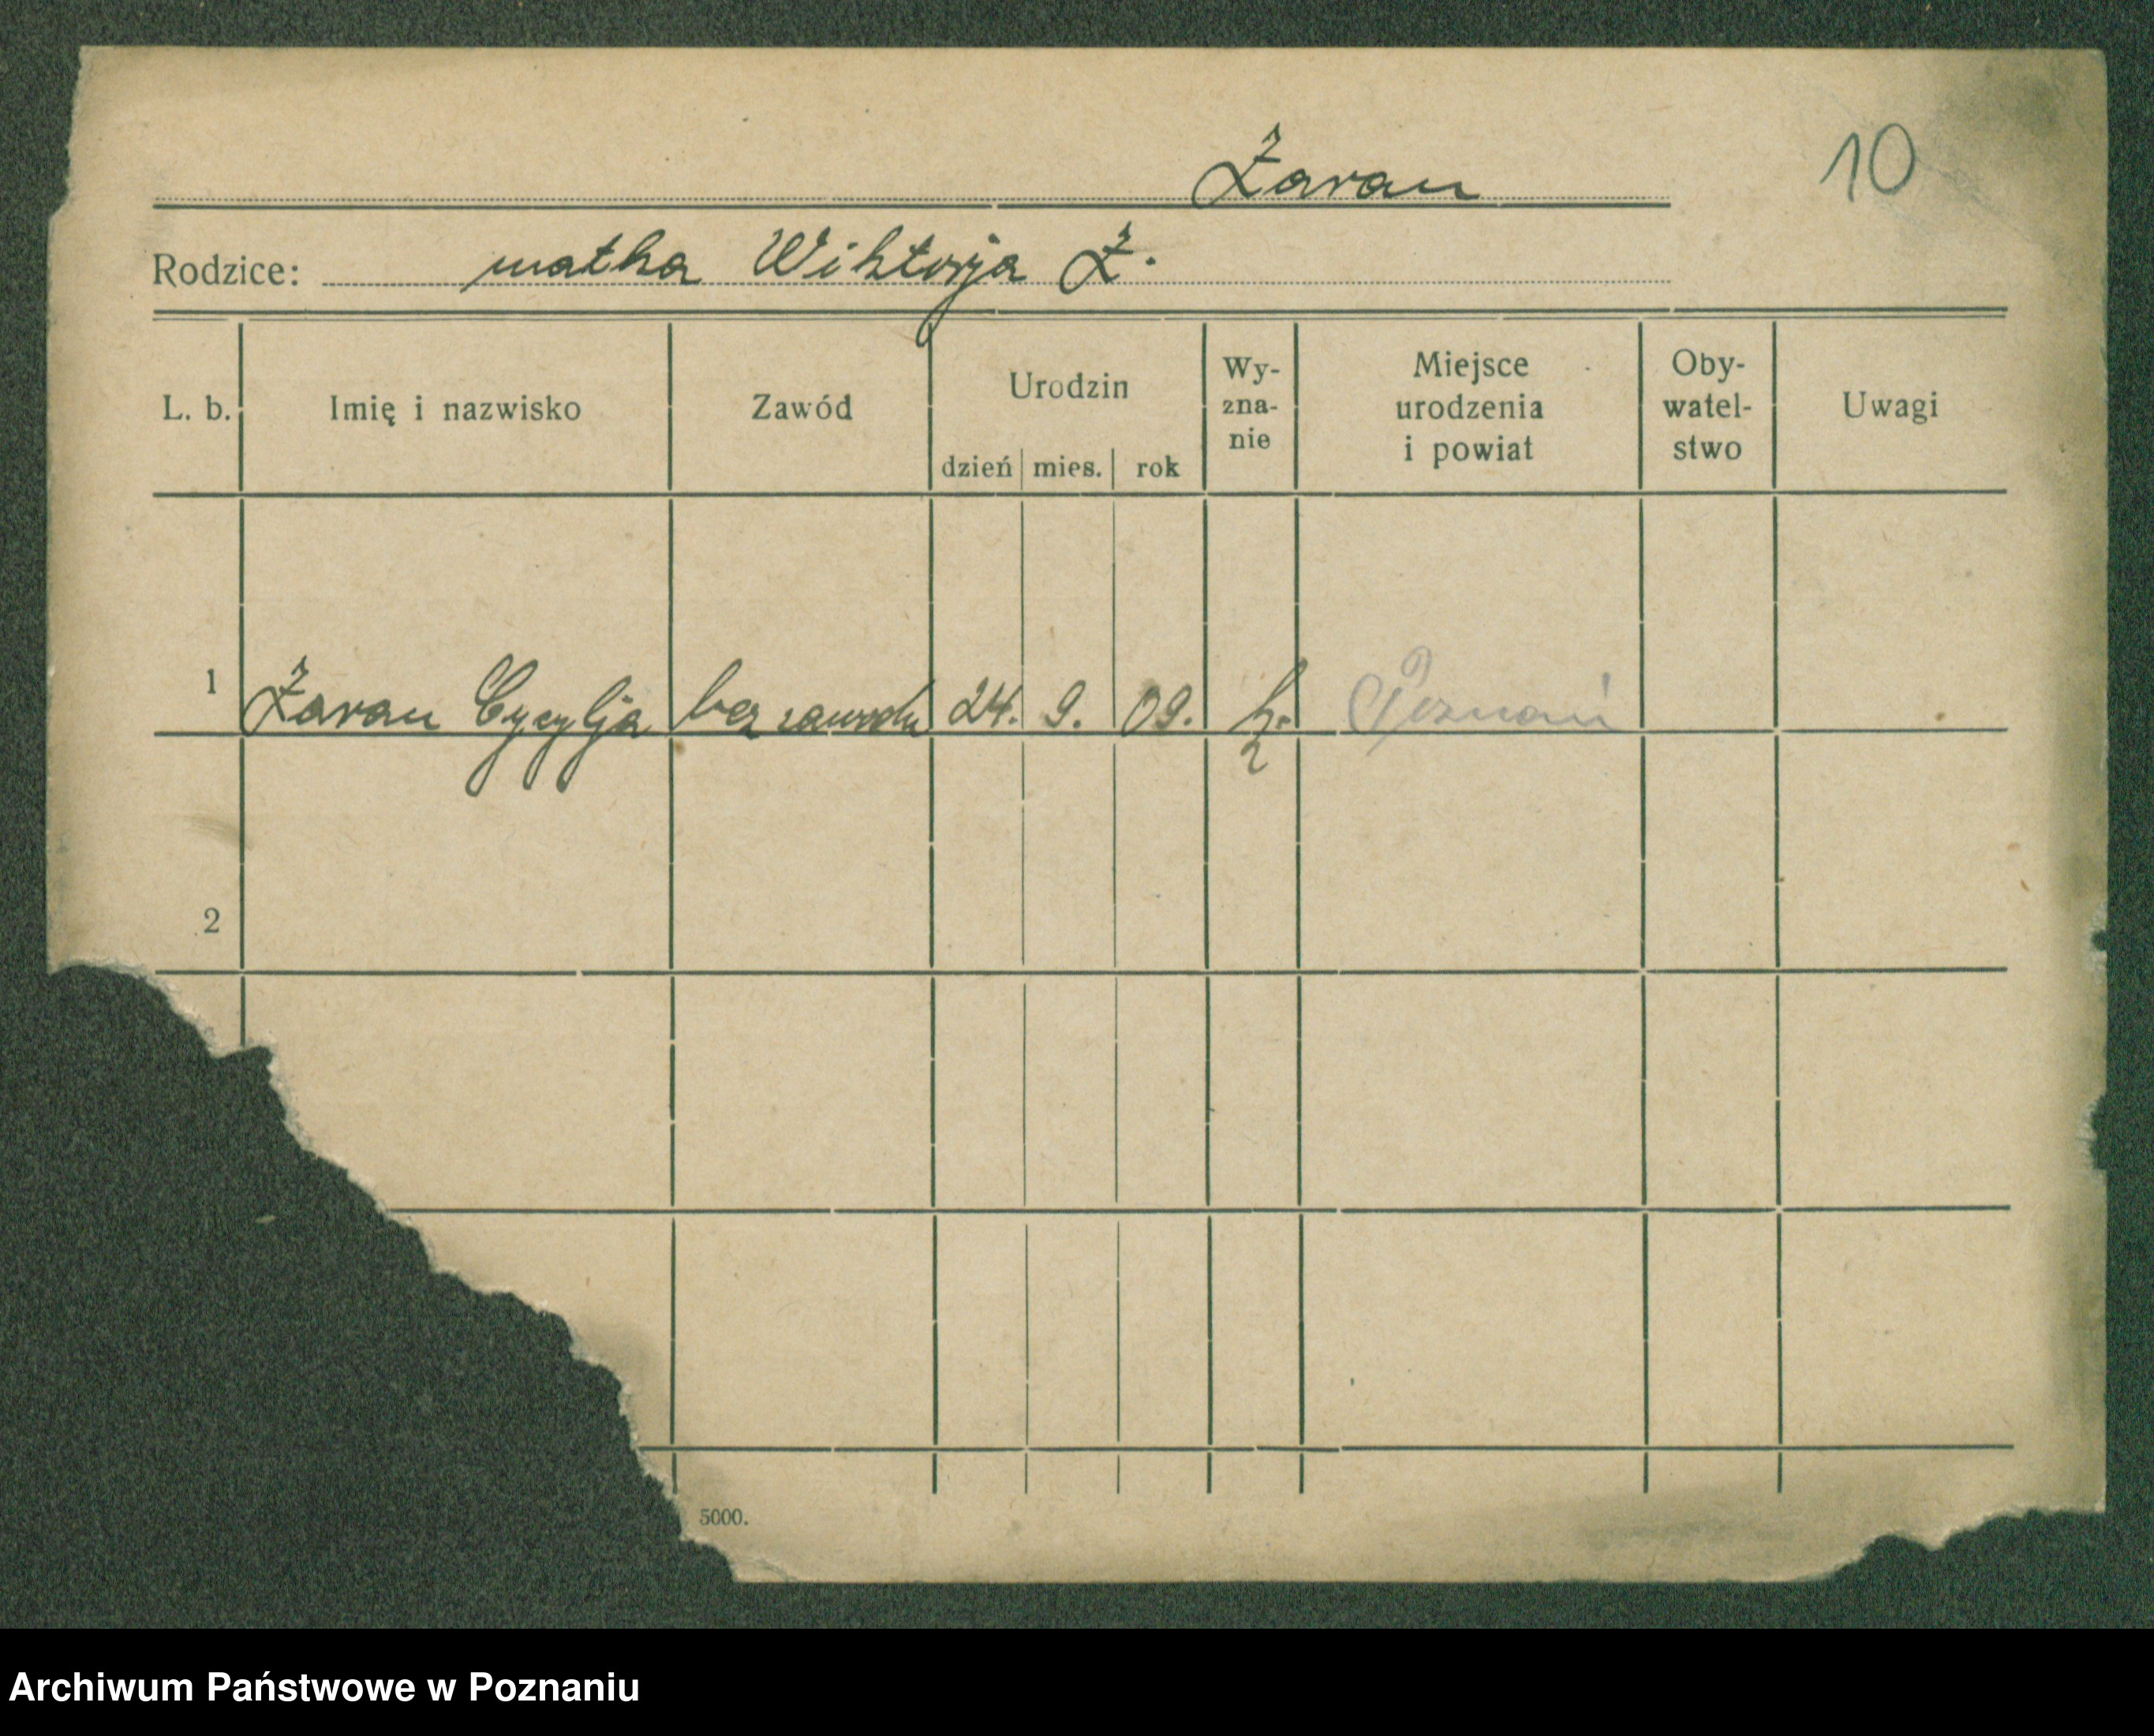 Żaran
10
Rodzice: matka Wiktorja Ż.
L. b. Imię i nazwisko Zawód Urodzin dzień mies. rok Wy-zna-nie Miejsce urodzenia i powiat Oby-watel-stwo Uwagi
1 Żaran Cycylja bez zawodu 24. 9. 09. k. Poznań
2
5000.
Archiwum Państwowe w Poznaniu